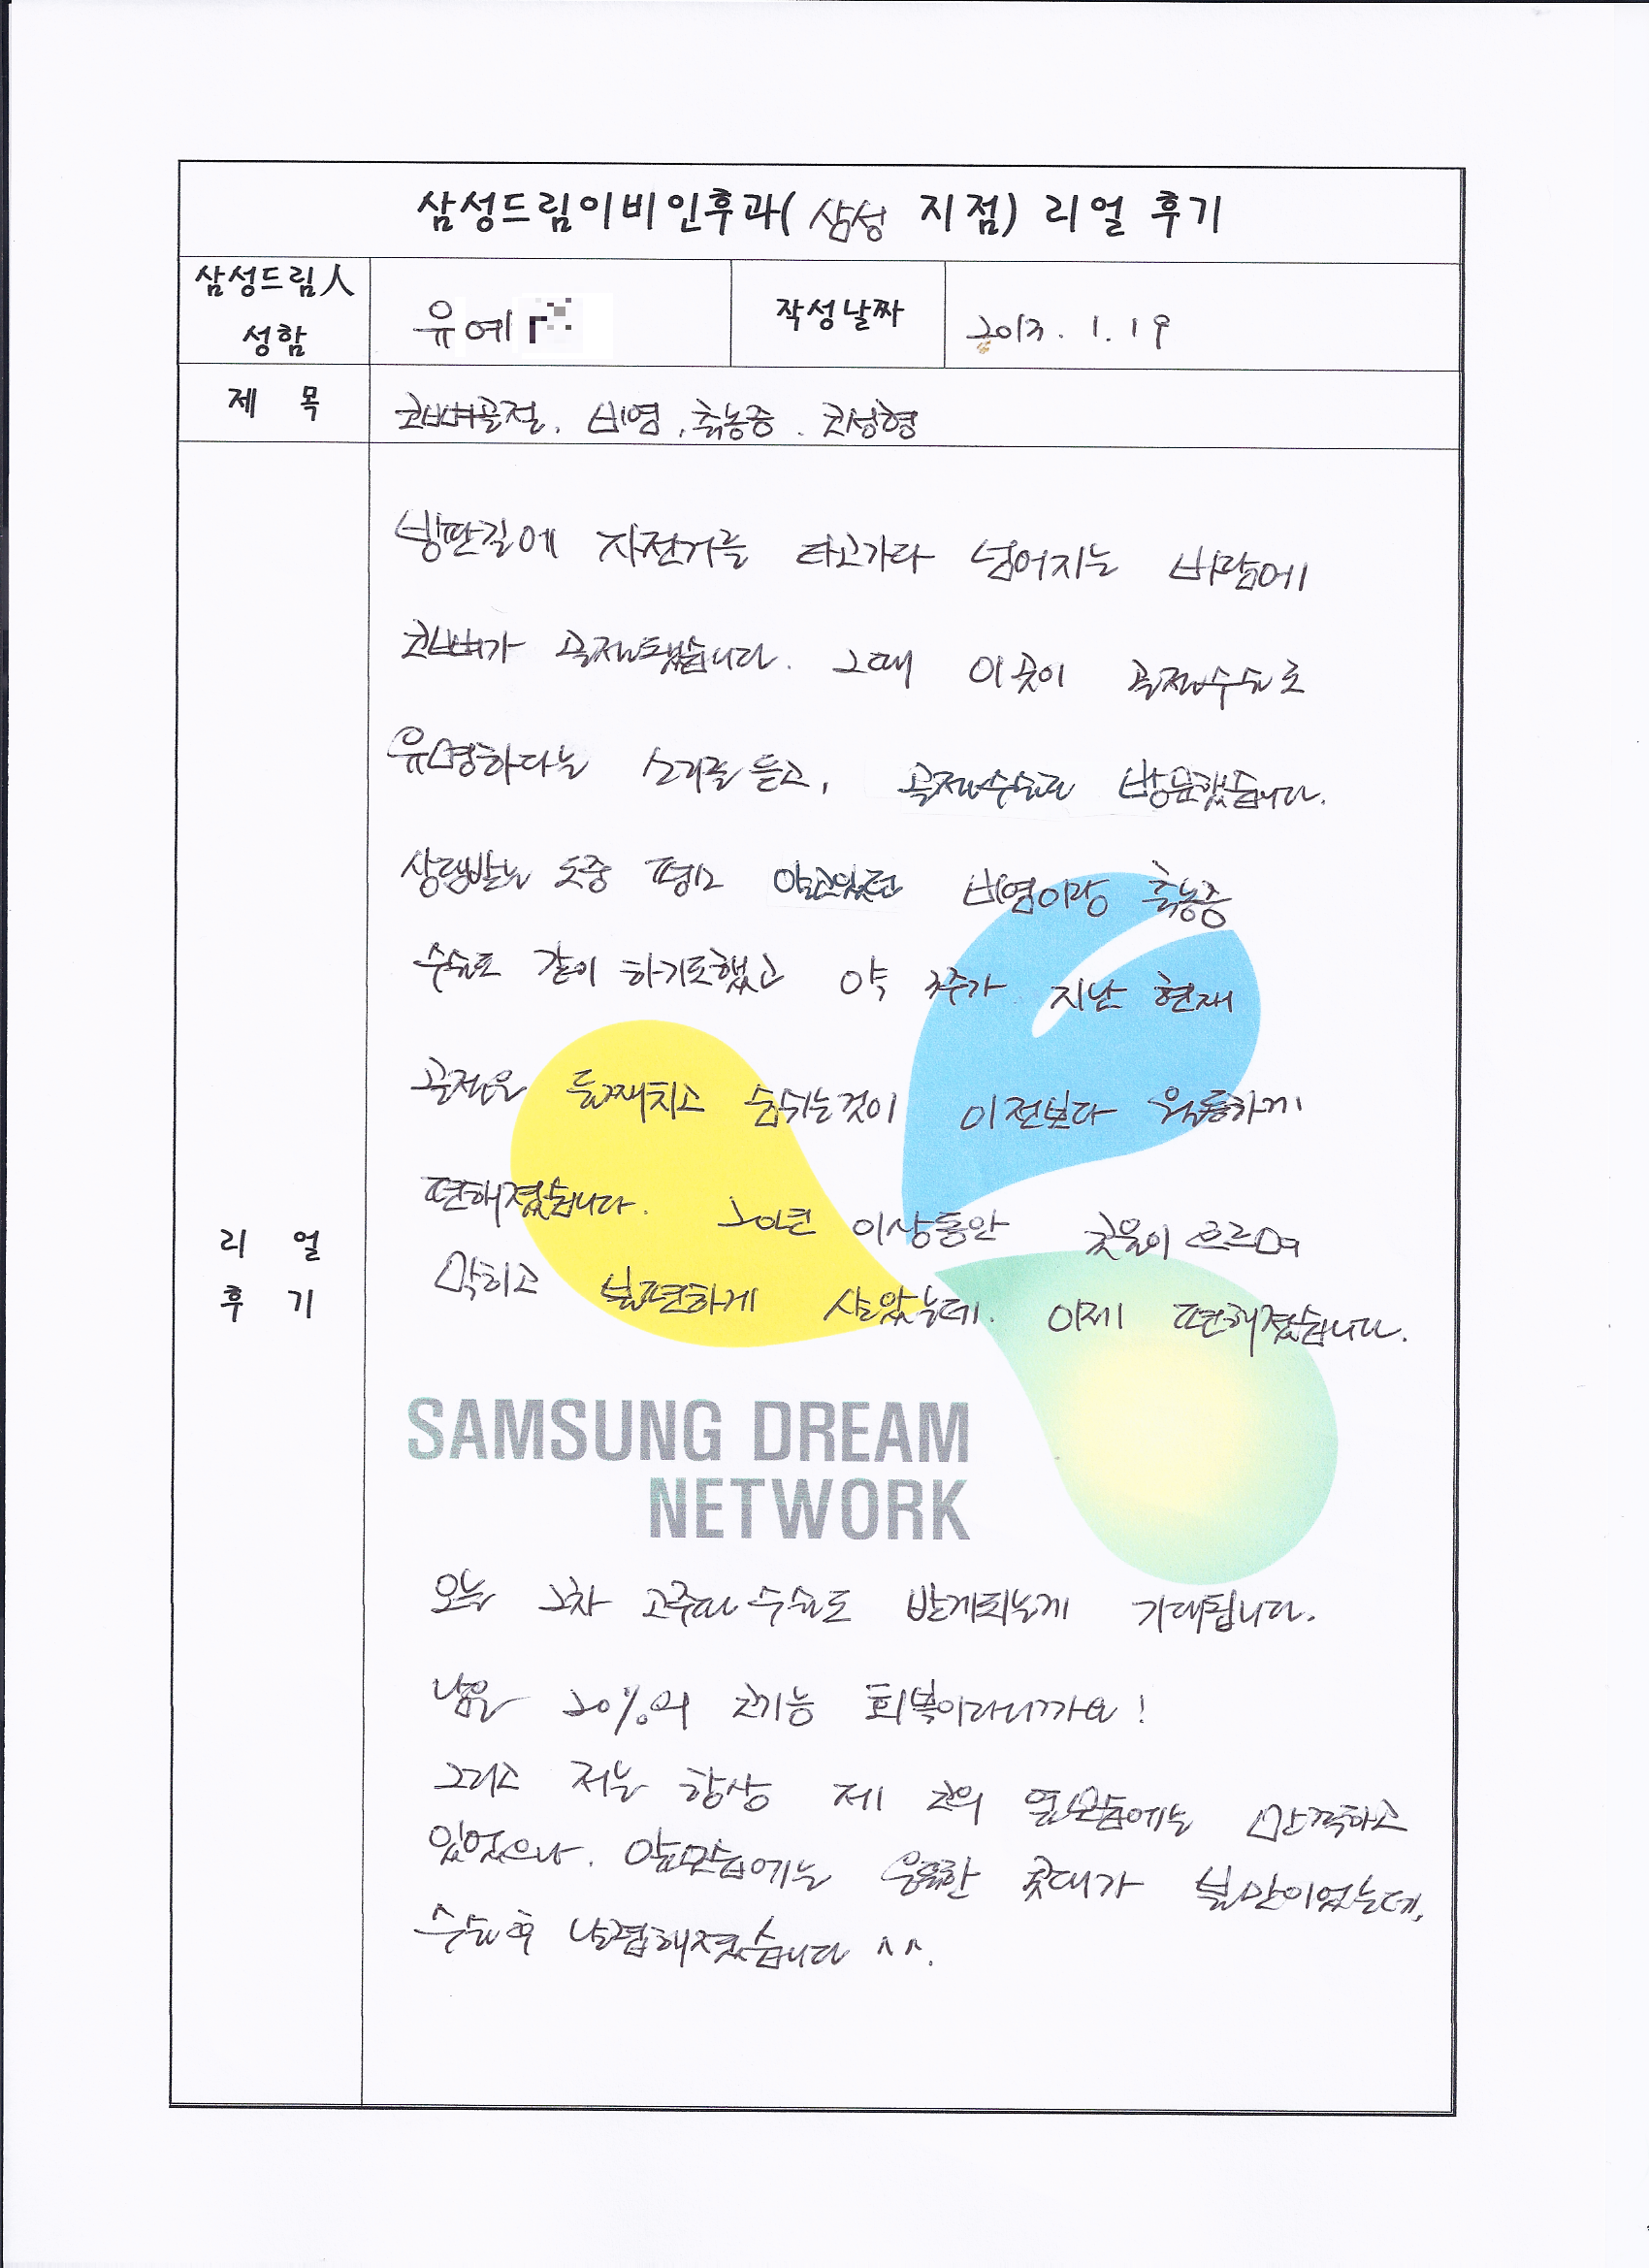 삼성드림이비인후과( 삼성 지점) 리얼 후기
삼성드림人
성함
유예
작성날짜
2013. 1. 19
제 목
코뼈골절. 비염. 축농증. 코성형
빙판길에 자전거를 타고가다 넘어지는 바람에
코뼈가 골절됐습니다. 그때 이곳이 골절수술로
유명하다는 소리를 듣고, 골절수술로 방문했습니다.
상담받는 도중 평소 앓고있던 비염이랑 축농증
수술도 같이 하기로했고 약 3주가 지난 현재
골절은 둘째치고 숨쉬는것이 이전보다 월등하게
편해졌습니다. 20년 이상동안 콧물이 흐르며
막히고 불편하게 살았는데. 이제 편해졌습니다.
리 얼
후 기
SAMSUNG DREAM
NETWORK
오늘 2차 고주파 수술도 받게되는게 기대됩니다.
남은 20%의 코기능 회복이라니까요!
그리고 저는 항상 제 코의 옆모습에는 만족하고
있었으나. 앞모습에는 뭉툭한 콧대가 불만이었는데,
수술후 날렵해졌습니다 ^^.